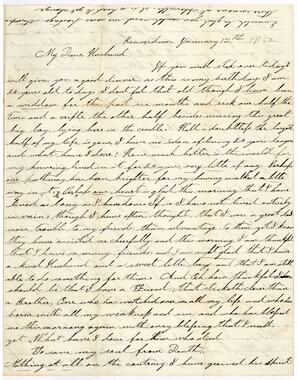 January 12th
My Dear Husband
If you will step over today I
will give you a good dinner as this is my birthday I am
24 years old to day I don't feel that old though I have been
a widow for the past six months and rock one half the
time and a trifle the other half besides nursing this great
big boy lying here in the cradle. Well doubtless the largest
half of my life is gone, I have no idea of living 24 years longer
and what have I done? How much better is the world for
my having lived in it for 24 years very little if any Perhaps
one Mother has been brighter for my having
way in it perhaps one heart is glad this morning that I have
lived as long as I have done If so I have not lived entirely
in vain, though I have often thought that I was a great deal
more trouble to my friends than advantage to them yet I know
they have assisted me cheerfully and this morning I am thankful
that I have so many friends and thankful that I have
a kind Husband and a sweet little boy and that I am still
able to do something for them. And Oh how thankful I
should be that I have a Friend that sticketh closer than
a Brother, One who has watched over me all my life and who has
borne with all my weakness and sin and who has blessed
me this morning again with every blessing that I need
yet What have I done for him who died
To save my soul from Death.
Nothing at all on the contrary I have grieved his Spirit